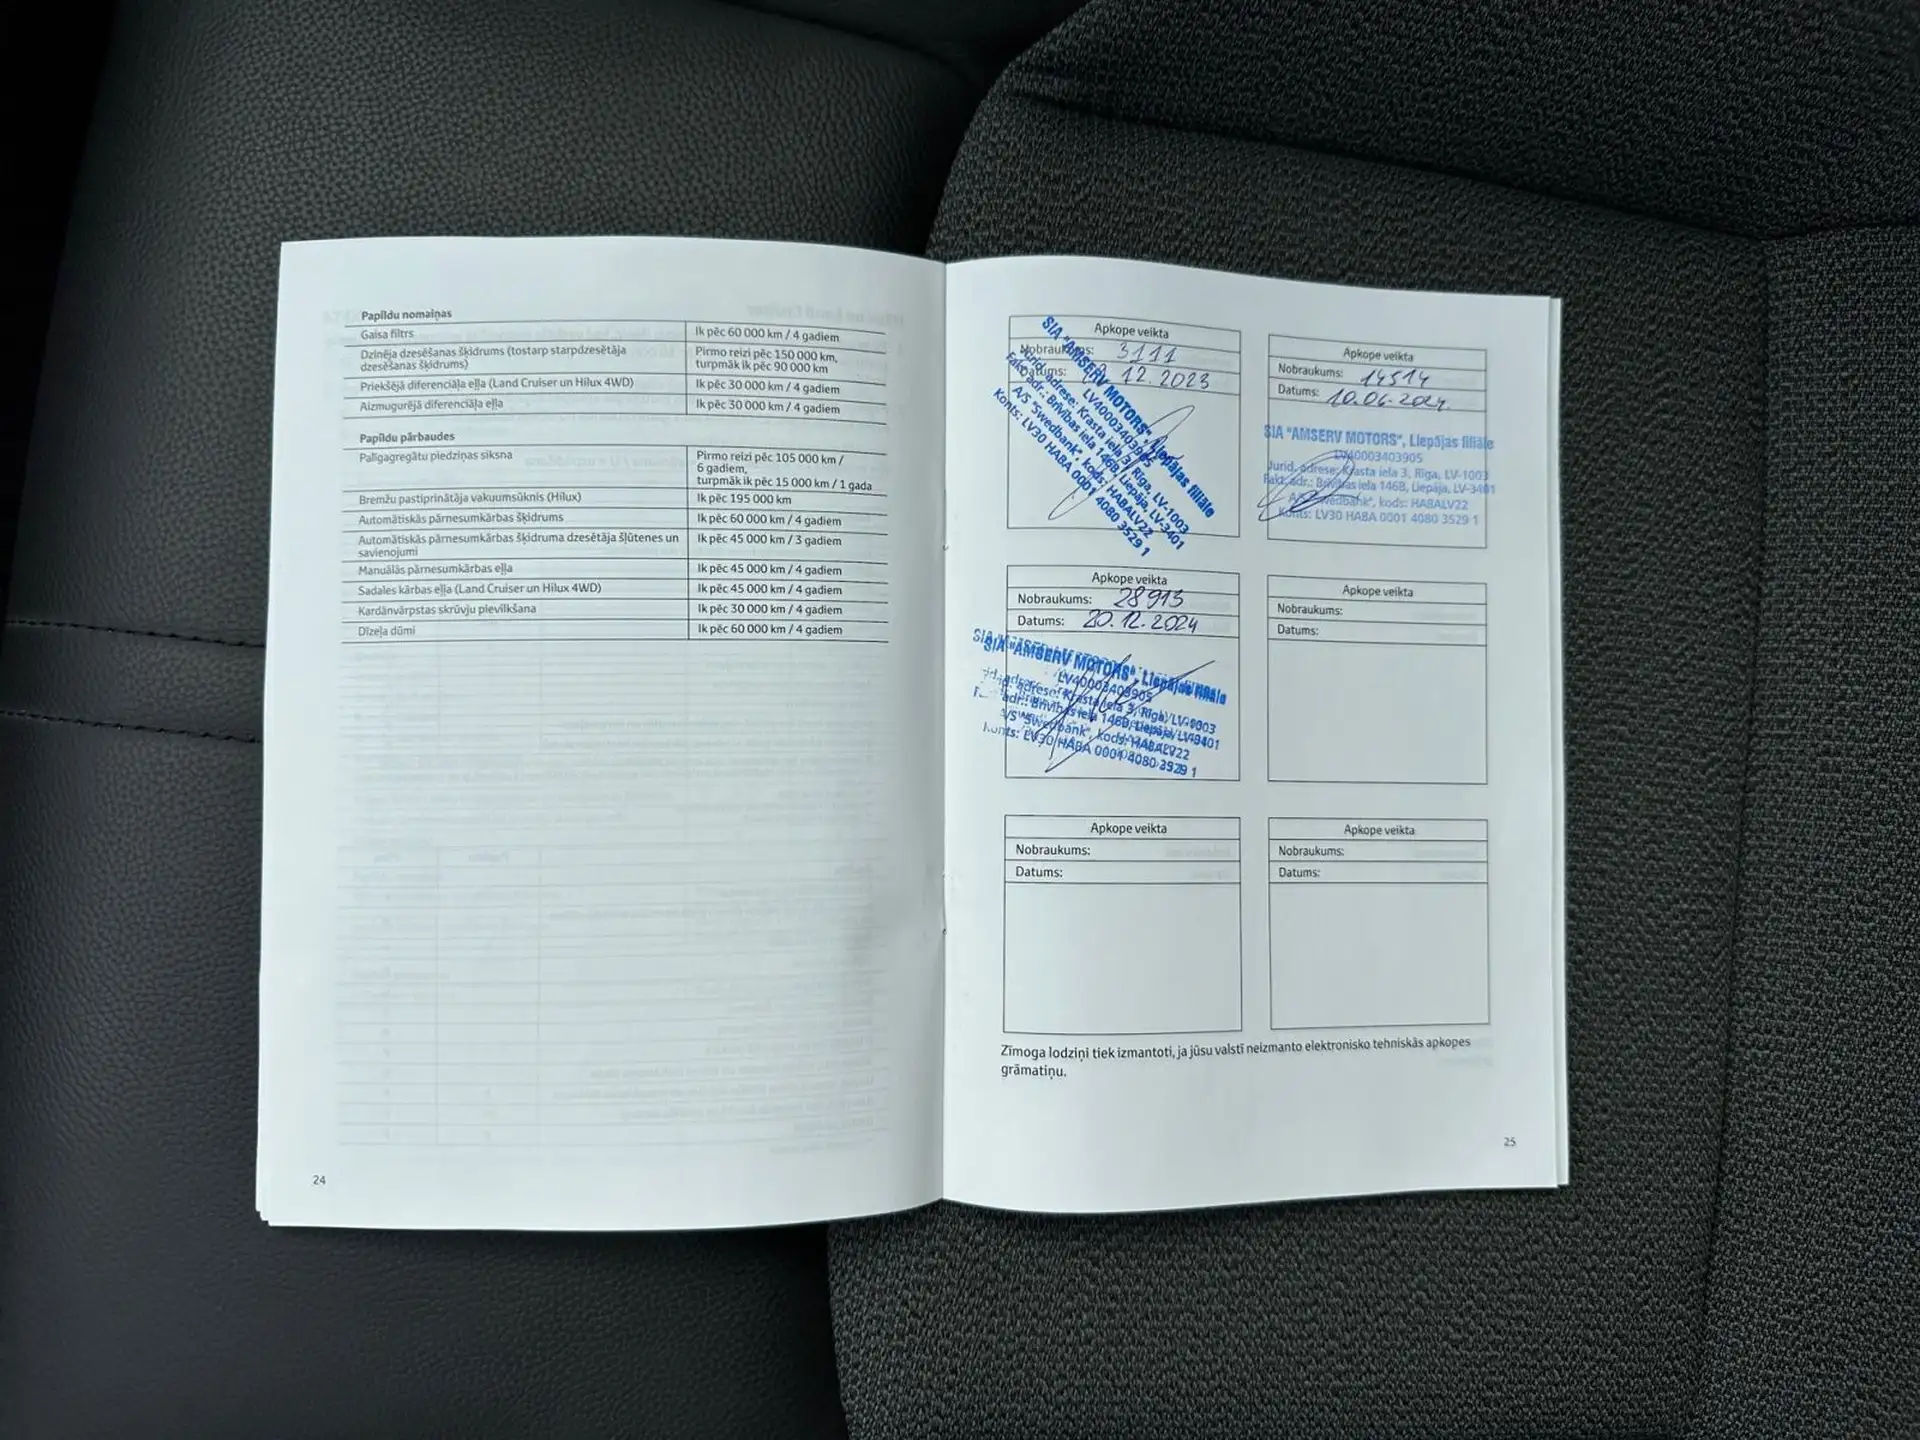 Papildu nomaiņas
Gaisa filtrs Ik pēc 60 000 km / 4 gadiem
Dzinēja dzesēšanas šķidrums (tostarp starpdzesētāja
dzesēšanas šķidrums)
Pirmo reizi pēc 150 000 km,
turpmāk ik pēc 90 000 km
Priekšējā diferenciāļa eļļa (Land Cruiser un Hilux 4WD) Ik pēc 30 000 km / 4 gadiem
Aizmugurējā diferenciāļa eļļa Ik pēc 30 000 km / 4 gadiem
Papildu pārbaudes
Palīgagregātu piedziņas siksna
Pirmo reizi pēc 105 000 km /
6 gadiem,
turpmāk ik pēc 15 000 km / 1 gada
Bremžu pastiprinātāja vakuumsūknis (Hilux) Ik pēc 195 000 km
Automātiskās pārnesumkārbas šķidrums Ik pēc 60 000 km / 4 gadiem
Automātiskās pārnesumkārbas šķidruma dzesētāja šļūtenes un
savienojumi
Ik pēc 45 000 km / 3 gadiem
Manuālās pārnesumkārbas eļļa Ik pēc 45 000 km / 4 gadiem
Sadales kārbas eļļa (Land Cruiser un Hilux 4WD) Ik pēc 45 000 km / 4 gadiem
Kardānvārpstas skrūvju pievilkšana Ik pēc 30 000 km / 4 gadiem
Dīzeļa dūmi Ik pēc 60 000 km / 4 gadiem
24
Apkope veikta
Nobraukums: 3111
Datums: 12.2023
SIA "AMSERV MOTORS", Liepājas filiāle
LV40003403905
Jurid. adrese: Krasta iela 3, Rīga, LV-1003
Fakt. adr.: Brīvības iela 146B, Liepāja, LV-3401
A/S "Swedbank", kods: HABALV22
Konts: LV30 HABA 0001 4080 3529 1
Apkope veikta
Nobraukums: 14514
Datums: 10.06.2024.
SIA "AMSERV MOTORS", Liepājas filiāle
LV40003403905
Jurid. adrese: Krasta iela 3, Rīga, LV-1003
Fakt. adr.: Brīvības iela 146B, Liepāja, LV-3401
A/S "Swedbank", kods: HABALV22
Konts: LV30 HABA 0001 4080 3529 1
Apkope veikta
Nobraukums: 28915
Datums: 20.12.2024
SIA "AMSERV MOTORS", Liepājas filiāle
LV40003403905
Jurid. adrese: Krasta iela 3, Rīga, LV-1003
adr.: Brīvības iela 146B, Liepāja, LV-3401
A/S "Swedbank", kods: HABALV22
Konts: LV30 HABA 0001 4080 3529 1
Apkope veikta
Nobraukums:
Datums:
Apkope veikta
Nobraukums:
Datums:
Apkope veikta
Nobraukums:
Datums:
Zīmoga lodziņi tiek izmantoti, ja jūsu valstī neizmanto elektronisko tehniskās apkopes
grāmatiņu.
25